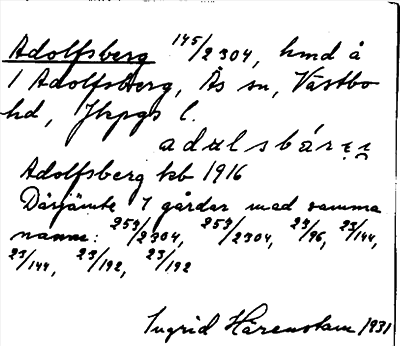 Adolfsberg 145/2304, hmd å
1 Adolfsberg, Ås sn, Västbo
hd, Jkpgs l.
adɑlsbárı̯ı̯
Adolfsberg kb 1916
Därjämte 7 gårdar med samma
namn: 253/2304, 253/2304, 23/96, 23/144,
23/144, 23/192, 23/192
Ingrid Härenstam 1931